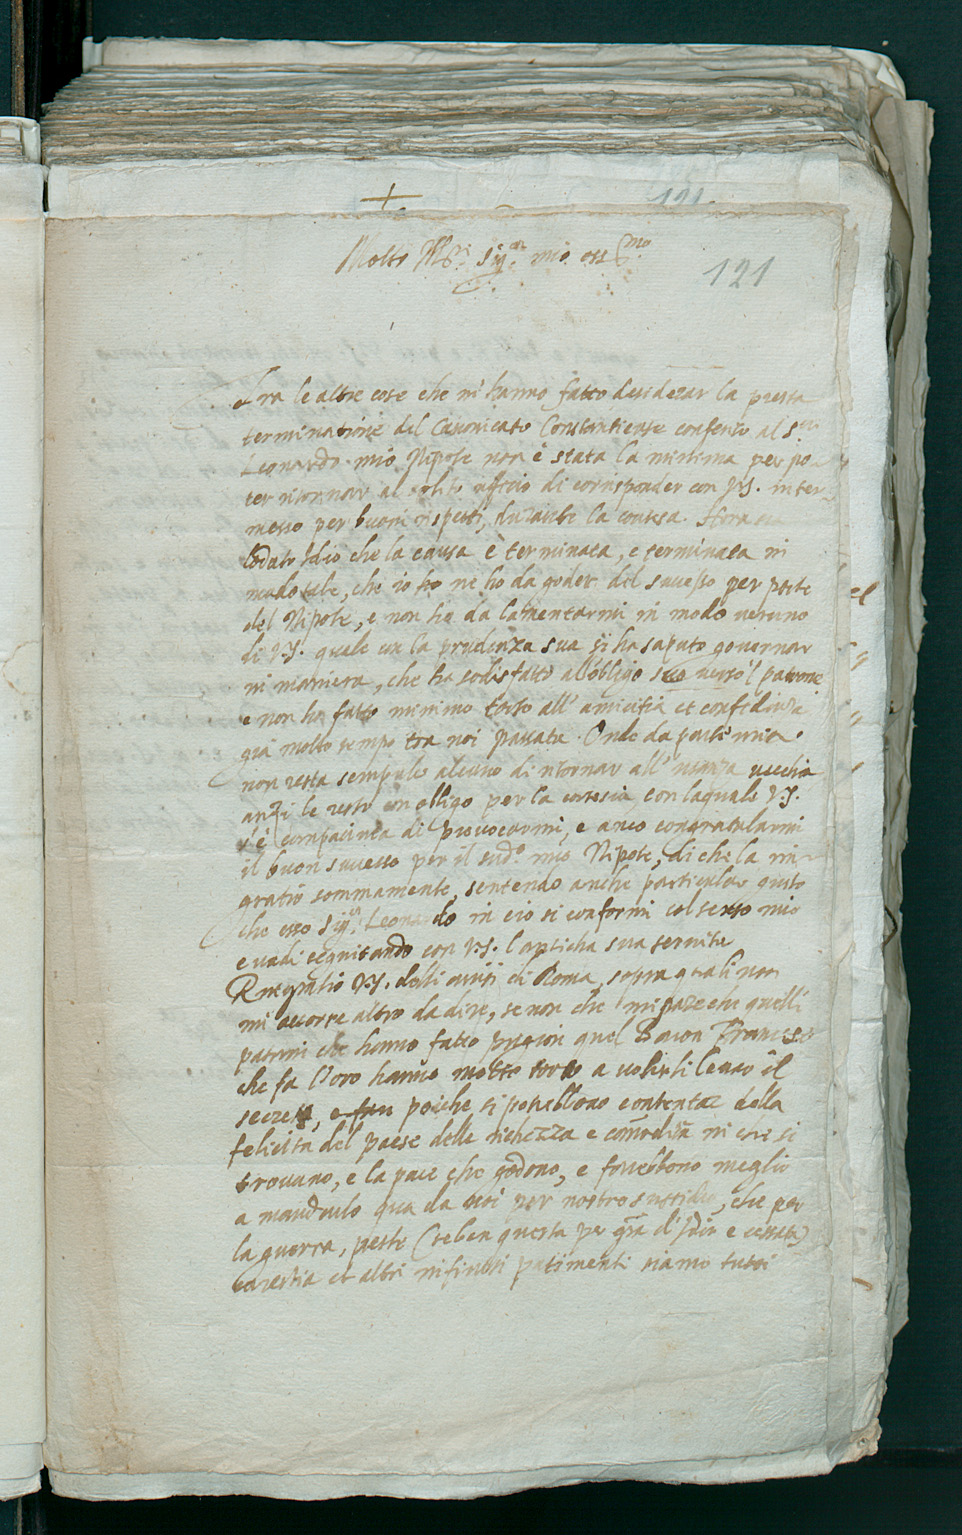 121
Molto Ill.re Sig.or mio oss.mo
121
Fra le altre cose che m'hanno fatto desiderar la presta
terminatione del Canonicato Constantiense conferito al S.or
Leonardo mio Nipote non è stata la minima per po-
ter ritornar al solito officio di corrisponder con V.S. inter-
messo per buoni rispetti, durante la contesa. Hora sia
lodato Idio che la causa è terminata, e terminata in
modo tale, che io ne ho da goder del successo per parte
del Nipote, e non ho da lamentarmi in modo veruno
di V.S. quale con la prudenza sua si ha saputo governar
in maniera, che ha sodisfatto all'obligo suo verso 'l patrone
e non ha fatto minimo torto all' amicitia et confidenza
già molto tempo tra noi passata. Onde da parte mia
non resta scrupulo alcuno di ritornar all' usanza vecchia
anzi le resto con obligo per la cortesia, con laquale V.S.
s'è compiaciuta di provocarmi, e anco congratularmi
il buon successo per il sud.o mio Nipote, di che la rin-
gratio sommamente, sentendo anche particolar gusto
che esso Sig.or Leonardo in ciò si conformi col senso mio
e vadi seguitando con V.S. l'anticha sua servitù
Ringratio V.S. delli avisi di Roma, sopra quali non
mi occorre altro da dire, se non che mi pare che quelli
patrini che hanno fatto prigion quel Baron Francese
che fa l'oro hanno molto torto a volerli levar il
secreto, poiche si potrebbono contentar della
felicità del paese delle richezza e comodità in che si
trovano, e la pace che godono, e farebbono meglio
a mandarlo qua da noi per nostro sussidio, che per
la guerra, peste (seben questa per gra d'Idio è cessata)
carestia et altri infiniti patimenti siamo tutti